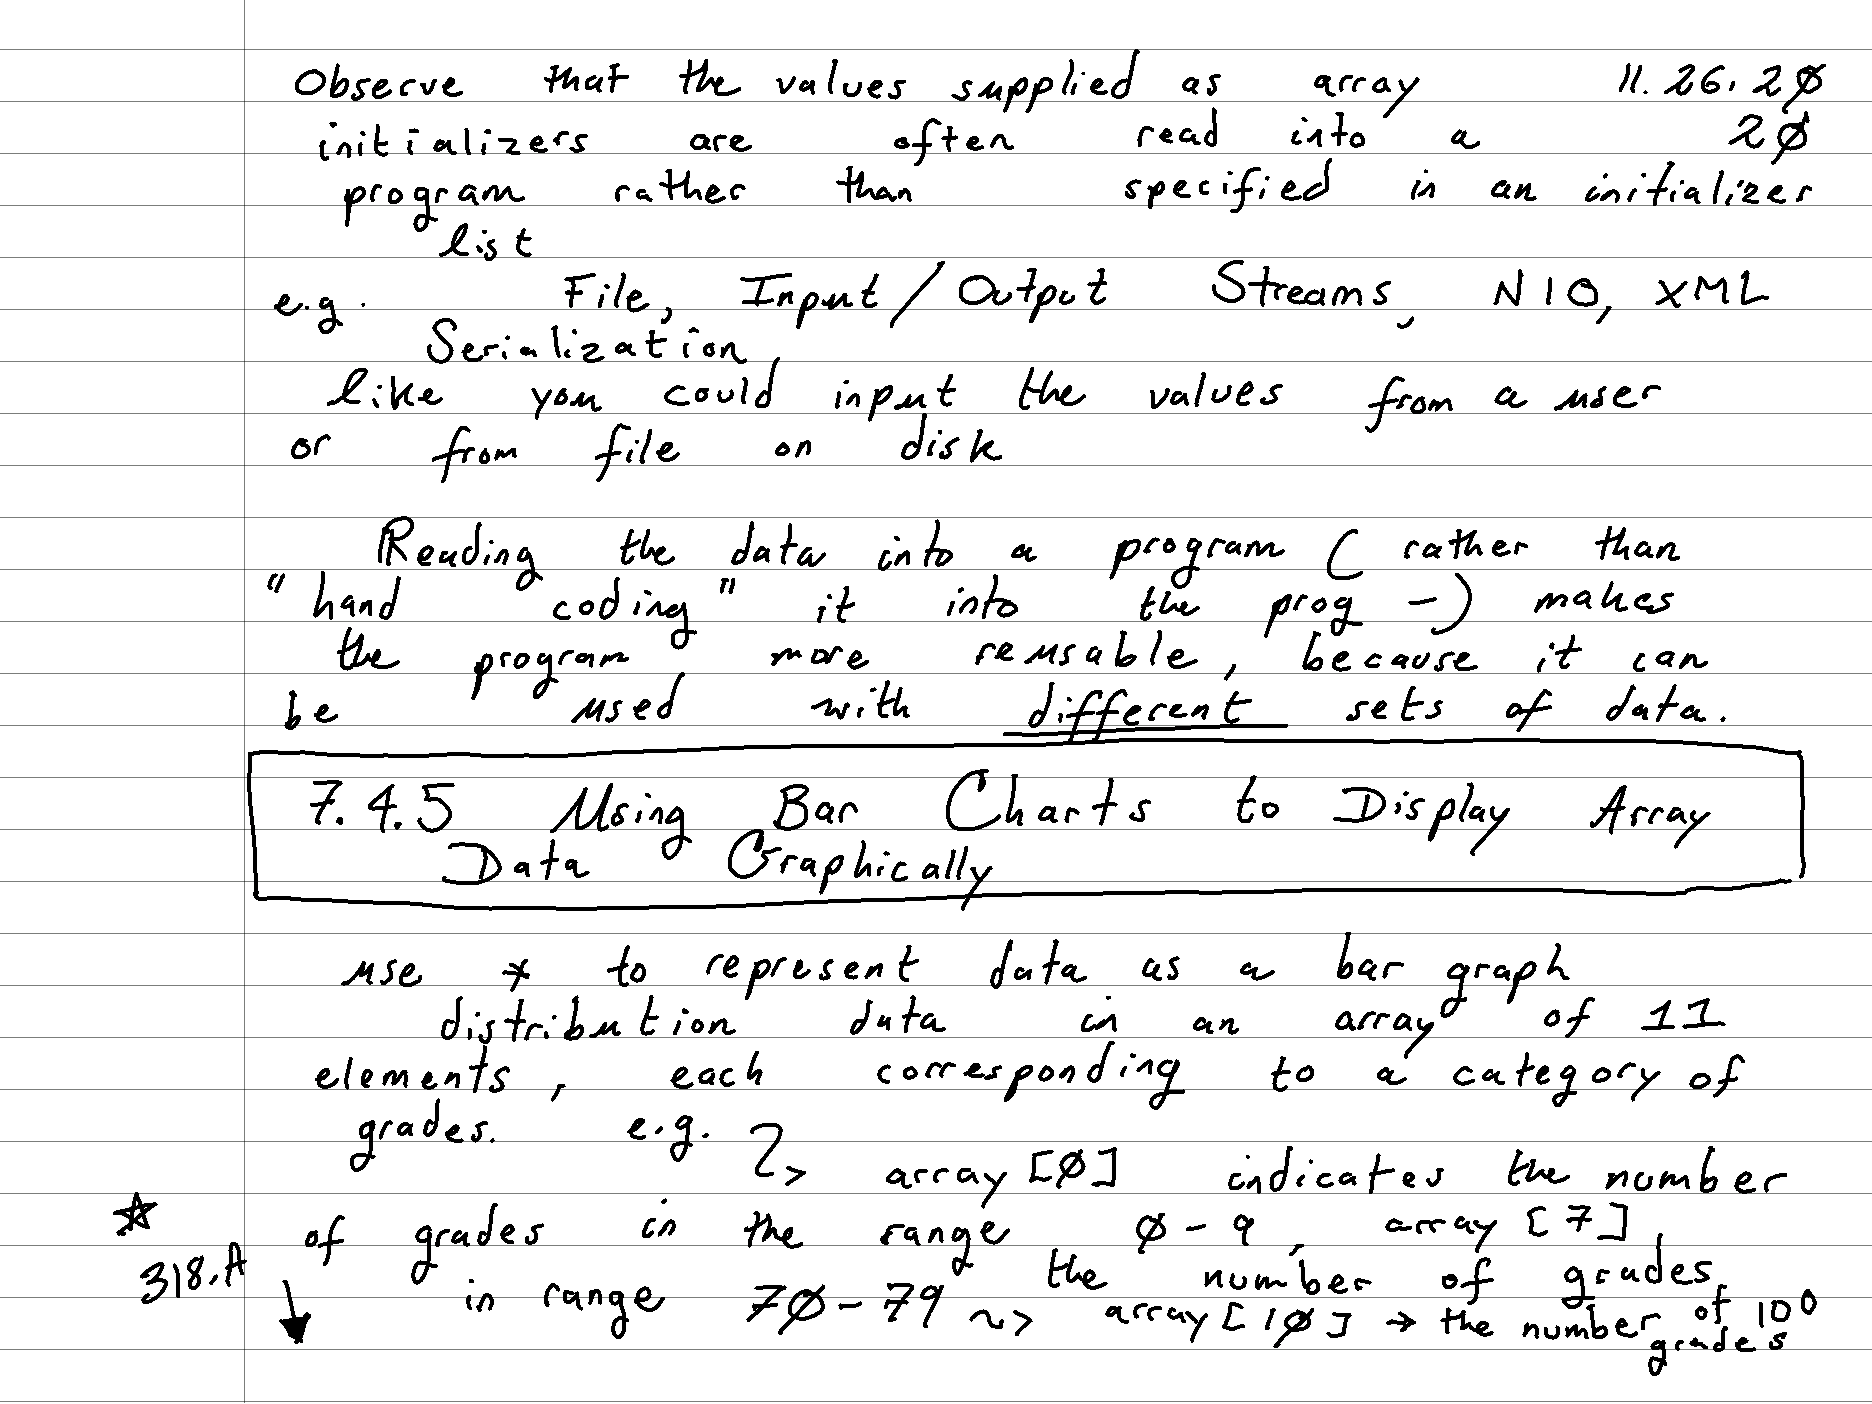 Observe that the values supplied as array 11.26.2Ø
initializers are often read into a 2Ø
program rather than specified in an initializer
list
e.g. File, Input/Output Streams, NIO, XML
Serialization,
like you could input the values from a user
or from file on disk
Reading the data into a program (rather than
"hand coding" it into the prog -) makes
the program more reusable, because it can
be used with different sets of data.
7.4.5 Using Bar Charts to Display Array
Data Graphically
use * to represent data as a bar graph
distribution data in an array of 11
elements, each corresponding to a category of
grades. e.g.
array [Ø] indicates the number
☆ of grades in the range Ø-9, array [7],
the number of grades
318.A ↓ in range 7Ø-79 ~> array[1Ø] → the number of 100
grades